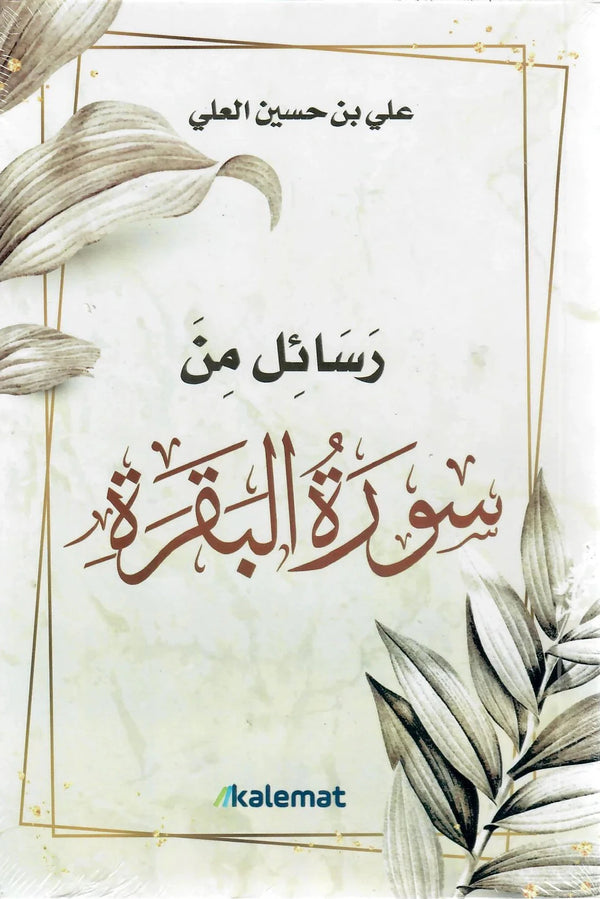 علي بن حسين العلي
رَسَائِل مِنَ
سورَةُ البَقَرَةِ
kalemat